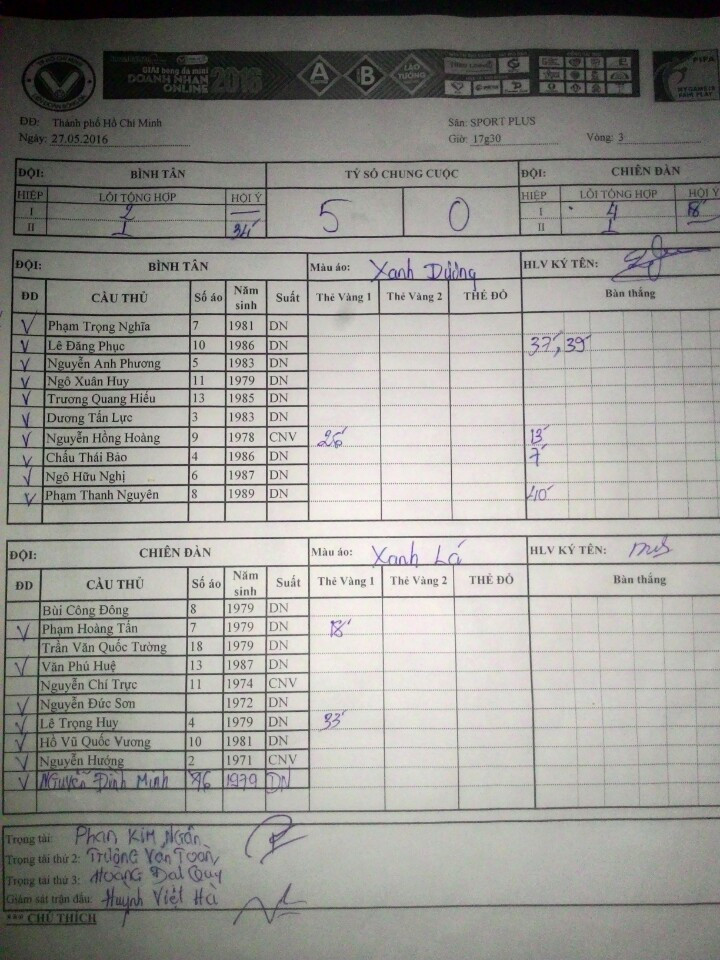 GIẢI bóng đá mini
DOANH NHÂN
ONLINE 2016
A B LÃO TƯỚNG
FIFA
ĐĐ: Thành phố Hồ Chí Minh Sân: SPORT PLUS
Ngày: 27.05.2016 Giờ: 17g30 Vòng: 3
ĐỘI: BÌNH TÂN TỶ SỐ CHUNG CUỘC ĐỘI: CHIÊN ĐÀN
HIỆP LỖI TỔNG HỢP HỘI Ý 5 0 HIỆP LỖI TỔNG HỢP HỘI Ý
I 2 — I 4 18'
II 1 34' II 1
ĐỘI: BÌNH TÂN Màu áo: Xanh Dương HLV KÝ TÊN:
ĐD CẦU THỦ Số áo Năm sinh Suất Thẻ Vàng 1 Thẻ Vàng 2 THẺ ĐỎ Bàn thắng
V Phạm Trọng Nghĩa 7 1981 DN
V Lê Đăng Phục 10 1986 DN 37', 39'
V Nguyễn Anh Phương 5 1983 DN
V Ngô Xuân Huy 11 1979 DN
V Trương Quang Hiếu 13 1985 DN
V Dương Tấn Lực 3 1983 DN
V Nguyễn Hồng Hoàng 9 1978 CNV 26' 13'
V Châu Thái Bảo 4 1986 DN 7'
V Ngô Hữu Nghị 6 1987 DN
V Phạm Thanh Nguyên 8 1989 DN 40'
ĐỘI: CHIÊN ĐÀN Màu áo: Xanh Lá HLV KÝ TÊN:
ĐD CẦU THỦ Số áo Năm sinh Suất Thẻ Vàng 1 Thẻ Vàng 2 THẺ ĐỎ Bàn thắng
Bùi Công Đông 8 1979 DN
V Phạm Hoàng Tấn 7 1979 DN 18'
Trần Văn Quốc Tường 18 1979 DN
V Văn Phú Huệ 13 1987 DN
Nguyễn Chí Trực 11 1974 CNV
V Nguyễn Đức Sơn 1972 DN
V Lê Trọng Huy 4 1979 DN 33'
V Hồ Vũ Quốc Vương 10 1981 DN
V Nguyễn Hướng 2 1971 CNV
V Nguyễn Đình Minh 1979 DN
Trọng tài: Phan Kim Ngân
Trọng tài thứ 2: Trương Văn Toàn
Trọng tài thứ 3: Hoàng Đạt Quy
Giám sát trận đấu: Huỳnh Việt Hà
*** CHÚ THÍCH